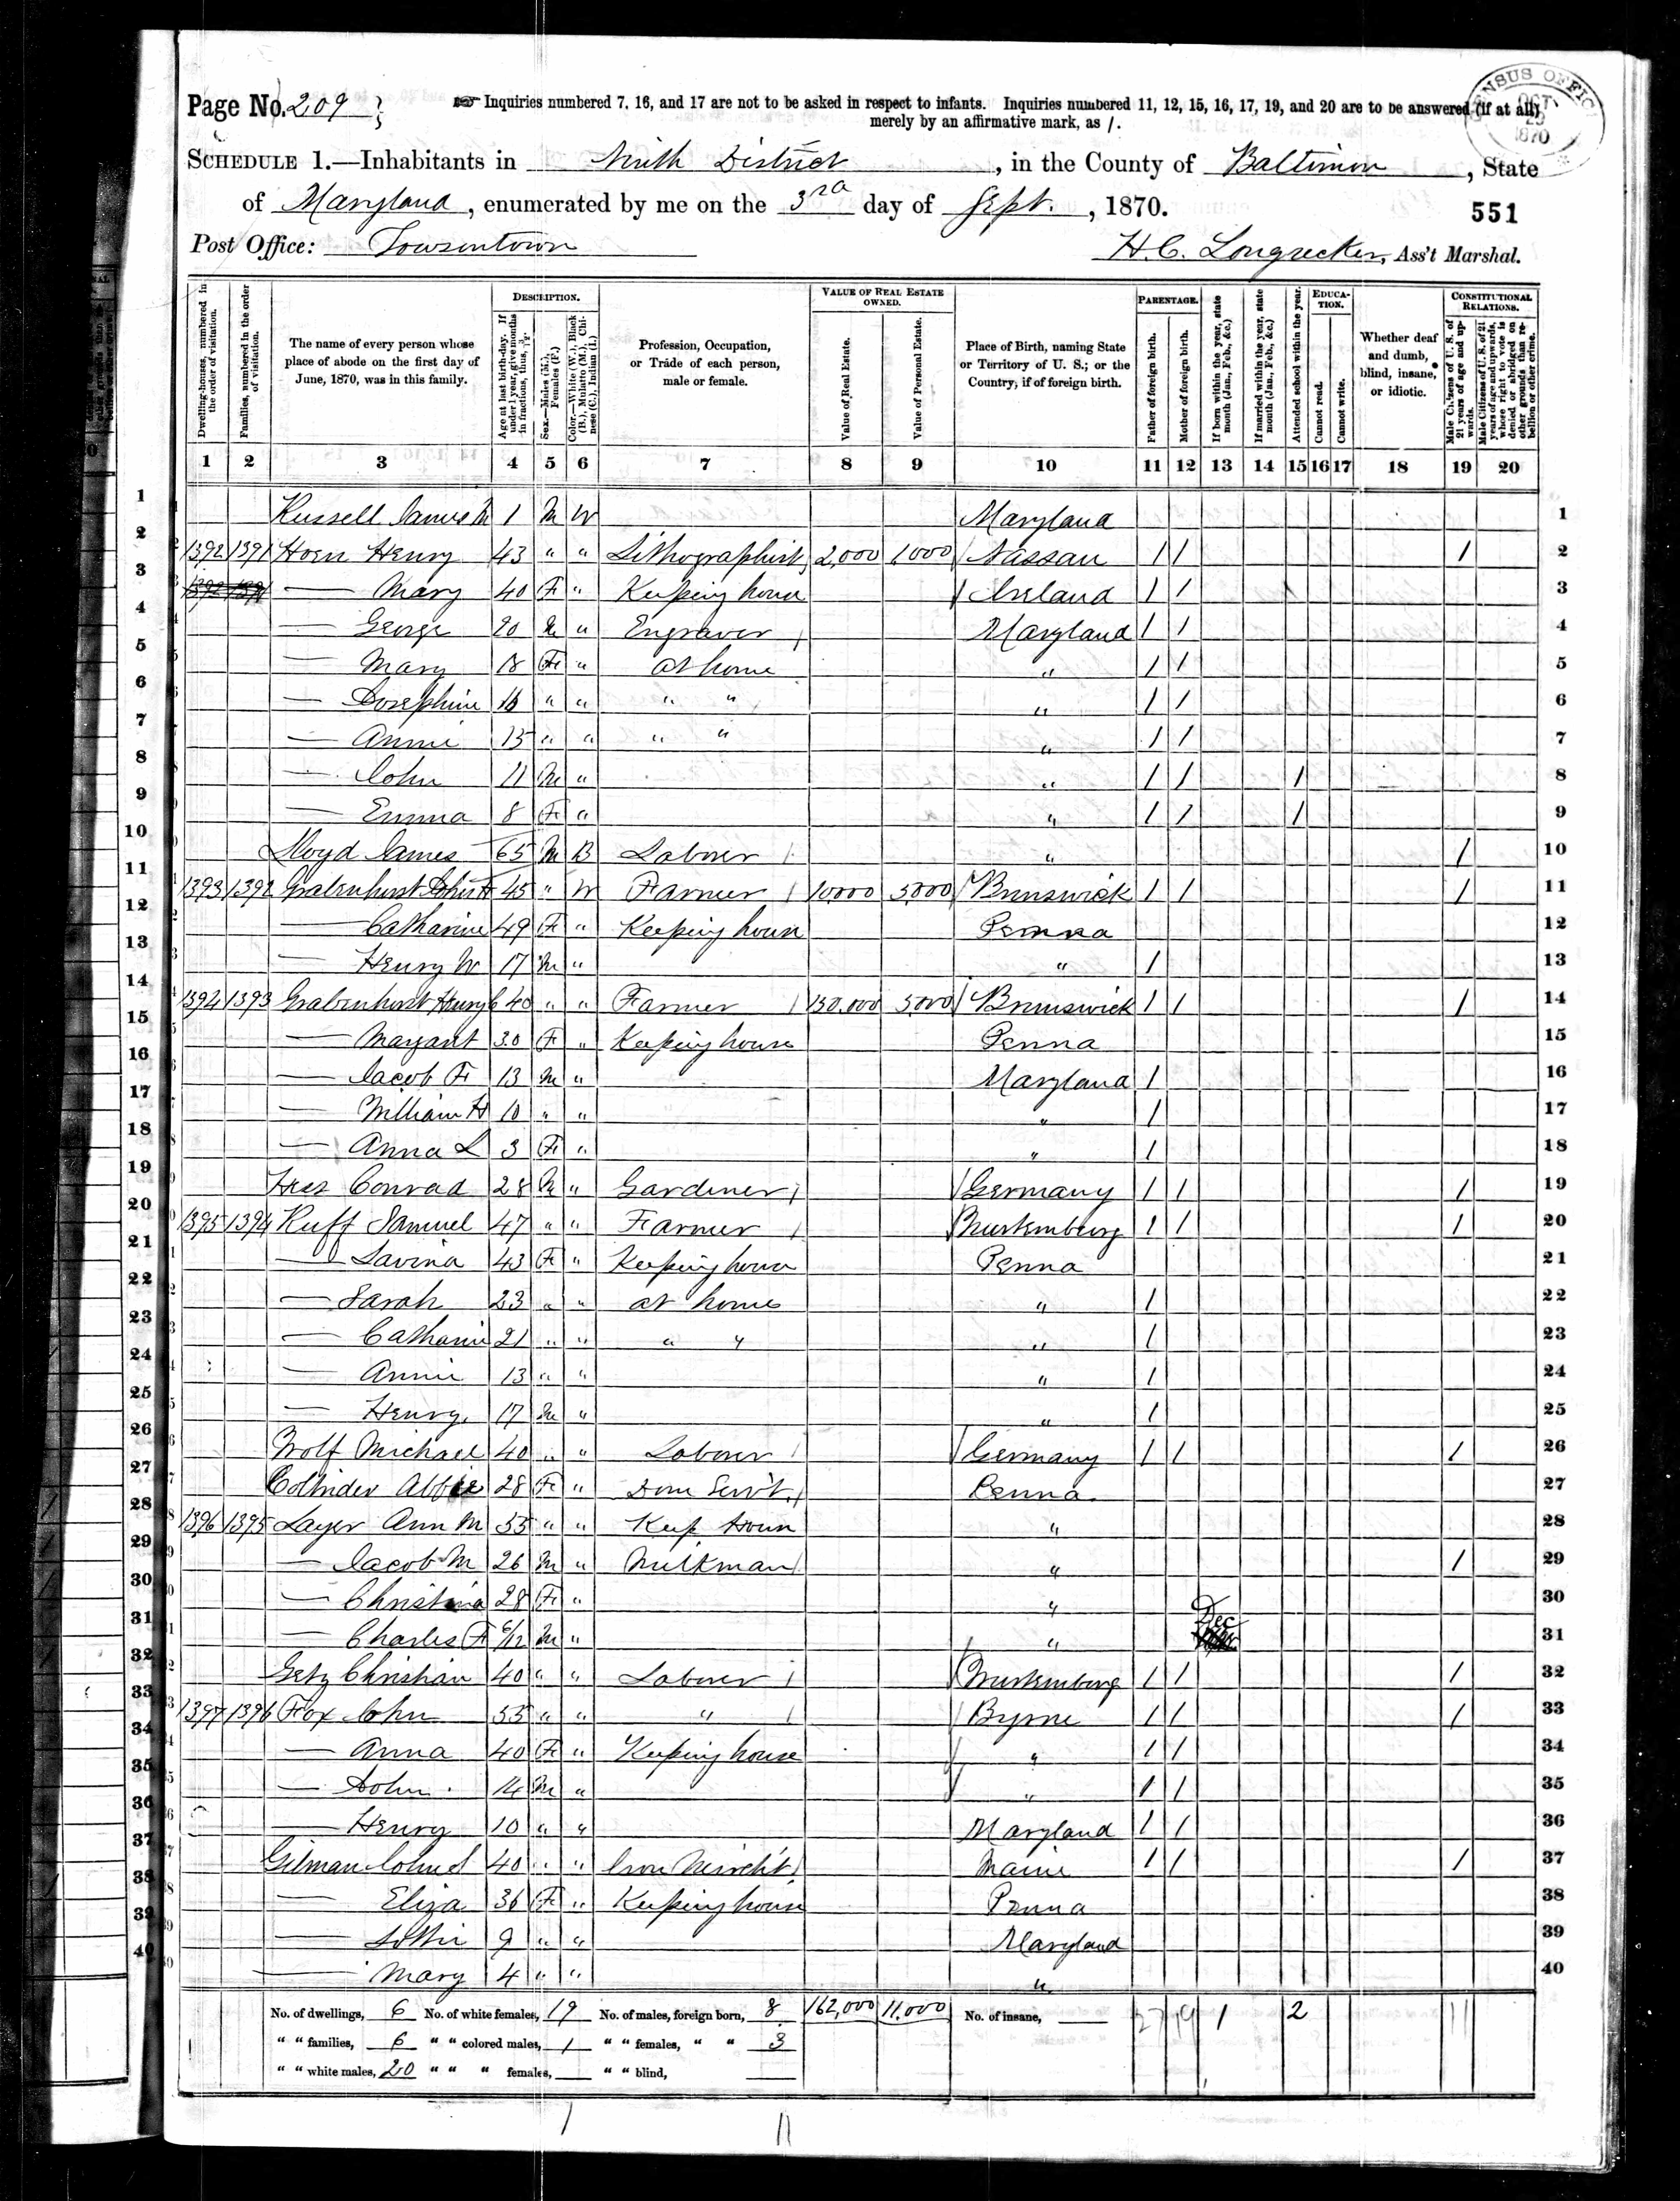 Page No. 209
Inquiries numbered 7, 16, and 17 are not to be asked in respect to infants. Inquiries numbered 11, 12, 15, 16, 17, 19, and 20 are to be answered (if at all)
merely by an affirmative mark, as /.
CENSUS OFFICE
1870
SCHEDULE 1.—Inhabitants in Ninth District, in the County of Baltimore, State
of Maryland, enumerated by me on the 3rd day of Sept., 1870.
551
Post Office: Towsontown
H.C. Longnecker, Ass't Marshal.
Dwelling-houses, numbered in the order of visitation.
Families, numbered in the order of visitation.
The name of every person whose place of abode on the first day of June, 1870, was in this family.
DESCRIPTION.
Age at last birth-day. If under 1 year, give months in fractions, thus, 3/12.
Sex.—Males (M.), Females (F.)
Color.—White (W.), Black (B.), Mulatto (M.), Chinese (C.), Indian (I.)
Profession, Occupation, or Trade of each person, male or female.
VALUE OF REAL ESTATE OWNED.
Value of Real Estate.
Value of Personal Estate.
Place of Birth, naming State or Territory of U. S.; or the Country, if of foreign birth.
PARENTAGE.
Father of foreign birth.
Mother of foreign birth.
If born within the year, state month (Jan., Feb., &c.)
If married within the year, state month (Jan., Feb., &c.)
Attended school within the year.
EDUCATION.
Cannot read.
Cannot write.
Whether deaf and dumb, blind, insane, or idiotic.
CONSTITUTIONAL RELATIONS.
Male Citizens of U. S. of 21 years of age and upwards.
Male Citizens of U. S. of 21 years of age and upwards, whose right to vote is denied or abridged on other grounds than rebellion or other crime.
1 2 3 4 5 6 7 8 9 10 11 12 13 14 15 16 17 18 19 20
1 Russell James M 1 M W Maryland 1
2 1392 1391 Horn Henry 43 " " Lithographist 2,000 1000 Nassau / / / 2
3 1392 1391 — Mary 40 F " Keeping house Ireland / / 3
4 — George 20 M " Engraver Maryland / / 4
5 — Mary 18 F " at home " / / 5
6 — Josephine 16 " " " " " / / 6
7 — Annie 13 " " " " " / / 7
8 — John 11 M " " / / / 8
9 — Emma 8 F " " / / / 9
10 Lloyd James 65 M B Laborer " / 10
11 1393 1392 Grabenhurst John H 45 " W Farmer 10,000 5,000 Brunswick / / / 11
12 — Catharine 49 F " Keeping house Penna 12
13 — Henry W 17 M " " / 13
14 1394 1393 Grabenhurst Henry C 40 " " Farmer 150,000 5000 Brunswick / / / 14
15 — Margaret 30 F " Keeping house Penna 15
16 — Jacob F 13 M " Maryland / 16
17 — William H 10 " " " / 17
18 — Anna L 3 F " " / 18
19 Hess Conrad 28 M " Gardener Germany / / / 19
20 1395 1394 Ruff Samuel 47 " " Farmer Wurtemburg / / / 20
21 — Lavina 43 F " Keeping house Penna 21
22 — Sarah 23 " " at home " / 22
23 — Catharine 21 " " " " " / 23
24 — Annie 13 " " " / 24
25 — Henry 17 M " " / 25
26 Wolf Michael 40 " " Laborer Germany / / / 26
27 Abbie 28 F " Dom Serv't. Penna. 27
28 1396 1395 Layer Ann M 55 " " Keep House " 28
29 — Jacob M 26 M " Milkman " / 29
30 — Christina 28 F " " 30
31 — Charles F 6/12 M " " Dec 31
32 Getz Christian 40 " " Laborer Wurtemburg / / / 32
33 1397 1396 Fox John 55 " " " Byrne / / / 33
34 — Anna 40 F " Keeping house " / / 34
35 — John 14 M " " / / 35
36 — Henry 10 " " Maryland / / 36
37 Gilman John S 40 " " Iron Merch't Maine / / / 37
38 — Eliza 36 F " Keeping house Penna 38
39 — Lottie 9 " " Maryland 39
40 — Mary 4 " " " 40
No. of dwellings, 6 No. of white females, 19 No. of males, foreign born, 8 162,000 11,000 No. of insane, 27 19 1 2 11
" " families, 6 " " colored males, 1 " " females, " " 3
" " white males, 20 " " " females, " " blind,